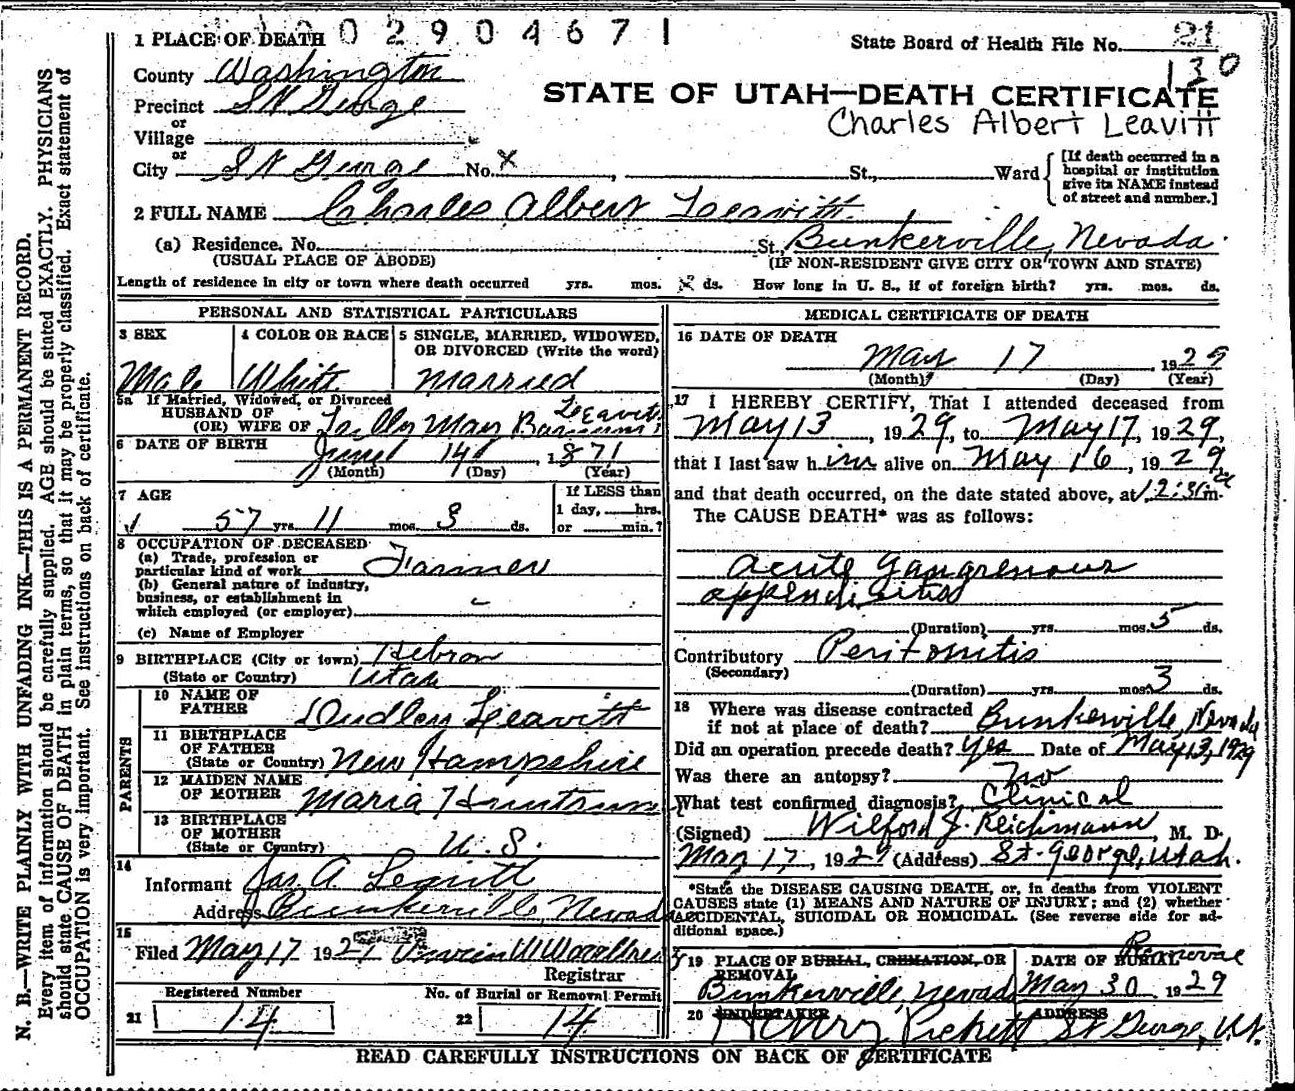 0 0 2 9 0 4 6 7 1
1 PLACE OF DEATH
State Board of Health File No. 21
130
County Washington
STATE OF UTAH—DEATH CERTIFICATE
Precinct St George
Charles Albert Leavitt
or
Village
or
City St George No. X , St., Ward
[If death occurred in a hospital or institution give its NAME instead of street and number.]
2 FULL NAME Charles Albert Leavitt
(a) Residence. No. St., Bunkerville, Nevada.
(USUAL PLACE OF ABODE) (IF NON-RESIDENT GIVE CITY OR TOWN AND STATE)
Length of residence in city or town where death occurred yrs. mos. ds. How long in U. S., if of foreign birth? yrs. mos. ds.
PERSONAL AND STATISTICAL PARTICULARS
3 SEX 4 COLOR OR RACE 5 SINGLE, MARRIED, WIDOWED, OR DIVORCED (Write the word)
Male White Married
5a If Married, Widowed, or Divorced
HUSBAND OF
(OR) WIFE OF May Leavitt
6 DATE OF BIRTH June 14 , 1871
(Month) (Day) (Year)
7 AGE
57 yrs. 11 mos. 3 ds.
If LESS than
1 day, hrs.
or min.?
8 OCCUPATION OF DECEASED
(a) Trade, profession or
particular kind of work Farmer
(b) General nature of industry,
business, or establishment in
which employed (or employer)
(c) Name of Employer
9 BIRTHPLACE (City or town) Hebron
(State or Country) Utah
PARENTS
10 NAME OF FATHER Dudley Leavitt
11 BIRTHPLACE OF FATHER (State or Country) New Hampshire
12 MAIDEN NAME OF MOTHER Maria
13 BIRTHPLACE OF MOTHER (State or Country) U. S.
14
Informant Jas A Leavitt
Address Bunkerville, Nevada
15
Filed May 17 1929
Registrar
Registered Number No. of Burial or Removal Permit
21 14 22 14
MEDICAL CERTIFICATE OF DEATH
16 DATE OF DEATH
May 17 1929
(Month) (Day) (Year)
17 I HEREBY CERTIFY, That I attended deceased from
May 13 , 1929, to May 17, 1929,
that I last saw him alive on May 16 , 1929
and that death occurred, on the date stated above, at m.
The CAUSE DEATH* was as follows:
Acute Gangrenous
appendicitis
(Duration) yrs. mos. 5 ds.
Contributory Peritonitis
(Secondary)
(Duration) yrs. mos. 3 ds.
18 Where was disease contracted
if not at place of death? Bunkerville, Nevada
Did an operation precede death? Yes Date of May 13, 1929
Was there an autopsy? No
What test confirmed diagnosis? Clinical
(Signed) Wilford J. Reichmann, M. D.
May 17, 1929 (Address) St. George, Utah.
*State the DISEASE CAUSING DEATH, or, in deaths from VIOLENT
CAUSES state (1) MEANS AND NATURE OF INJURY; and (2) whether
ACCIDENTAL, SUICIDAL OR HOMICIDAL. (See reverse side for ad-
ditional space.)
19 PLACE OF BURIAL, CREMATION, OR REMOVAL DATE OF BURIAL Removal
Bunkerville, Nevada May 30 1929
20 UNDERTAKER ADDRESS
Henry Pickett St George, Ut.
READ CAREFULLY INSTRUCTIONS ON BACK OF CERTIFICATE
N. B.—WRITE PLAINLY WITH UNFADING INK—THIS IS A PERMANENT RECORD.
Every item of information should be carefully supplied. AGE should be stated EXACTLY. PHYSICIANS
should state CAUSE OF DEATH in plain terms, so that it may be properly classified. Exact statement of
OCCUPATION is very important. See instructions on back of certificate.